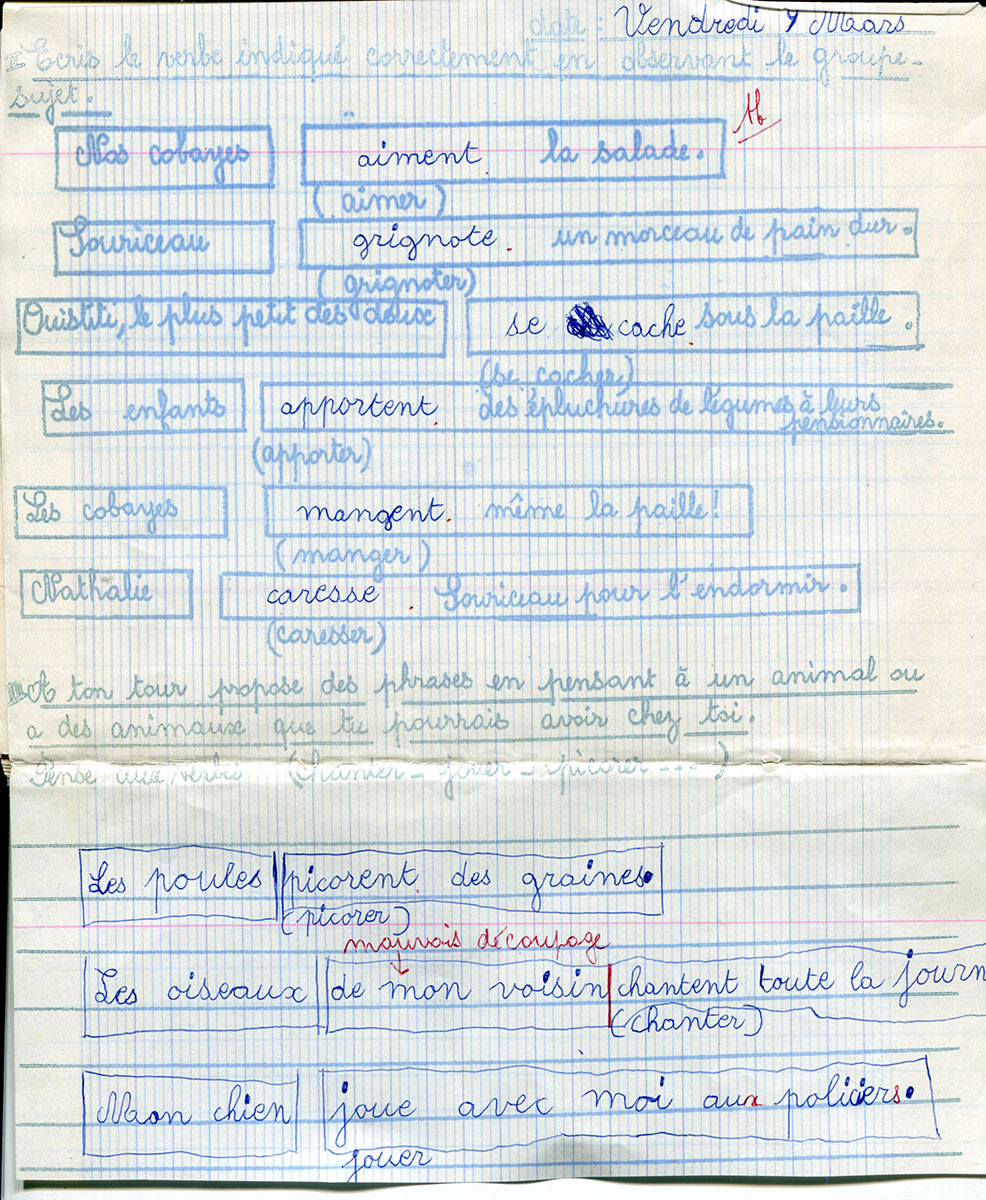 date : Vendredi 4 Mars
II Ecris le verbe indiqué correctement en observant le groupe-
sujet.
Tb
Nos cobayes aiment la salade.
(aimer)
Souriceau grignote un morceau de pain dur.
(grignoter)
Ouistiti, le plus petit des deux se cache sous la paille.
(se cacher)
Les enfants apportent des épluchures de légumes à leurs
pensionnaires.
(apporter)
Les cobayes mangent même la paille!
(manger)
Nathalie caresse Souriceau pour l'endormir.
(caresser)
III A ton tour propose des phrases en pensant à un animal ou
a des animaux que tu pourrais avoir chez toi.
Pense aux verbes (chanter - jouer - picorer ---)
Les poules picorent des graines.
(picorer)
mauvais découpage
Les oiseaux de mon voisin chantent toute la journ
(chanter)
Mon chien joue avec moi aux policiers.
jouer